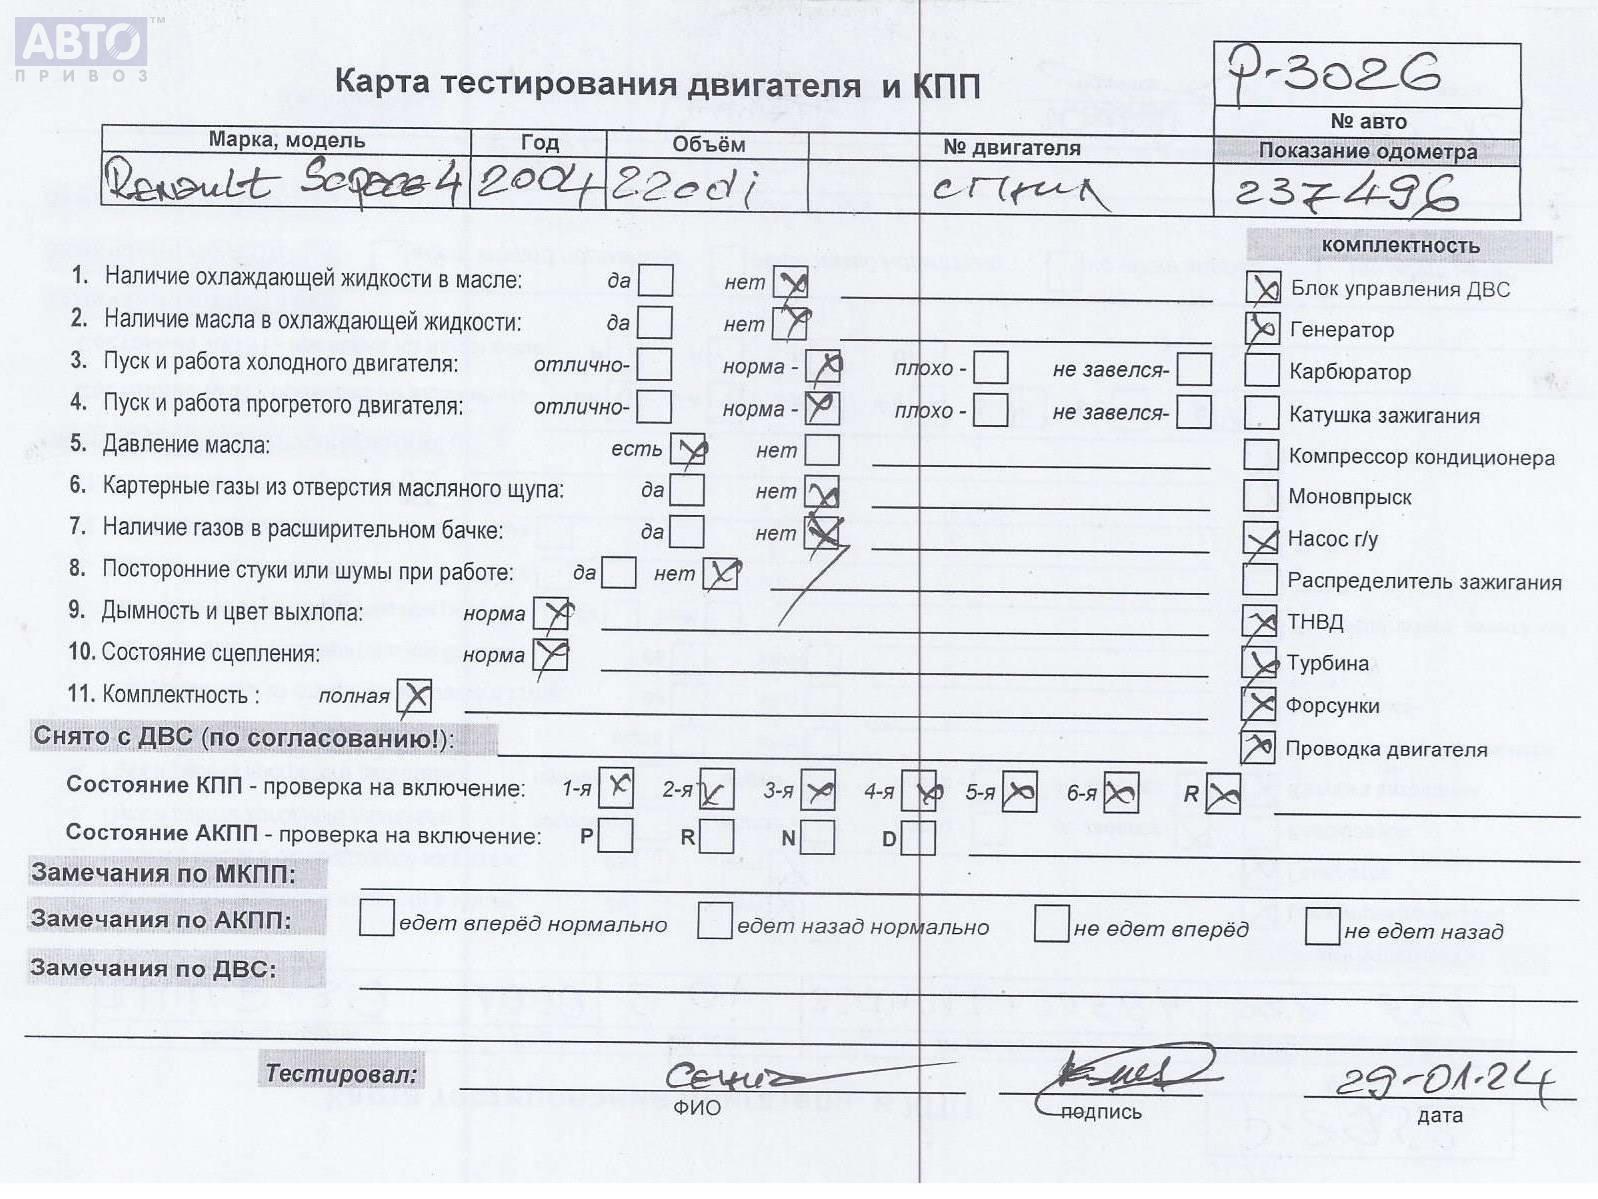 АВТО™
ПРИВОЗ
P-3026
Карта тестирования двигателя и КПП
№ авто
Марка, модель Год Объём № двигателя Показание одометра
Renault 2004 220di 237496
комплектность
1. Наличие охлаждающей жидкости в масле: да нет Блок управления ДВС
2. Наличие масла в охлаждающей жидкости: да нет Генератор
3. Пуск и работа холодного двигателя: отлично- норма - плохо - не завелся- Карбюратор
4. Пуск и работа прогретого двигателя: отлично- норма - плохо - не завелся- Катушка зажигания
5. Давление масла: есть нет Компрессор кондиционера
6. Картерные газы из отверстия масляного щупа: да нет Моновпрыск
7. Наличие газов в расширительном бачке: да нет Насос г/у
8. Посторонние стуки или шумы при работе: да нет Распределитель зажигания
9. Дымность и цвет выхлопа: норма ТНВД
10. Состояние сцепления: норма Турбина
11. Комплектность : полная Форсунки
Снято с ДВС (по согласованию!): Проводка двигателя
Состояние КПП - проверка на включение: 1-я 2-я 3-я 4-я 5-я 6-я R
Состояние АКПП - проверка на включение: P R N D
Замечания по МКПП:
Замечания по АКПП: едет вперёд нормально едет назад нормально не едет вперёд не едет назад
Замечания по ДВС:
Тестировал: 29-01-24
ФИО подпись дата